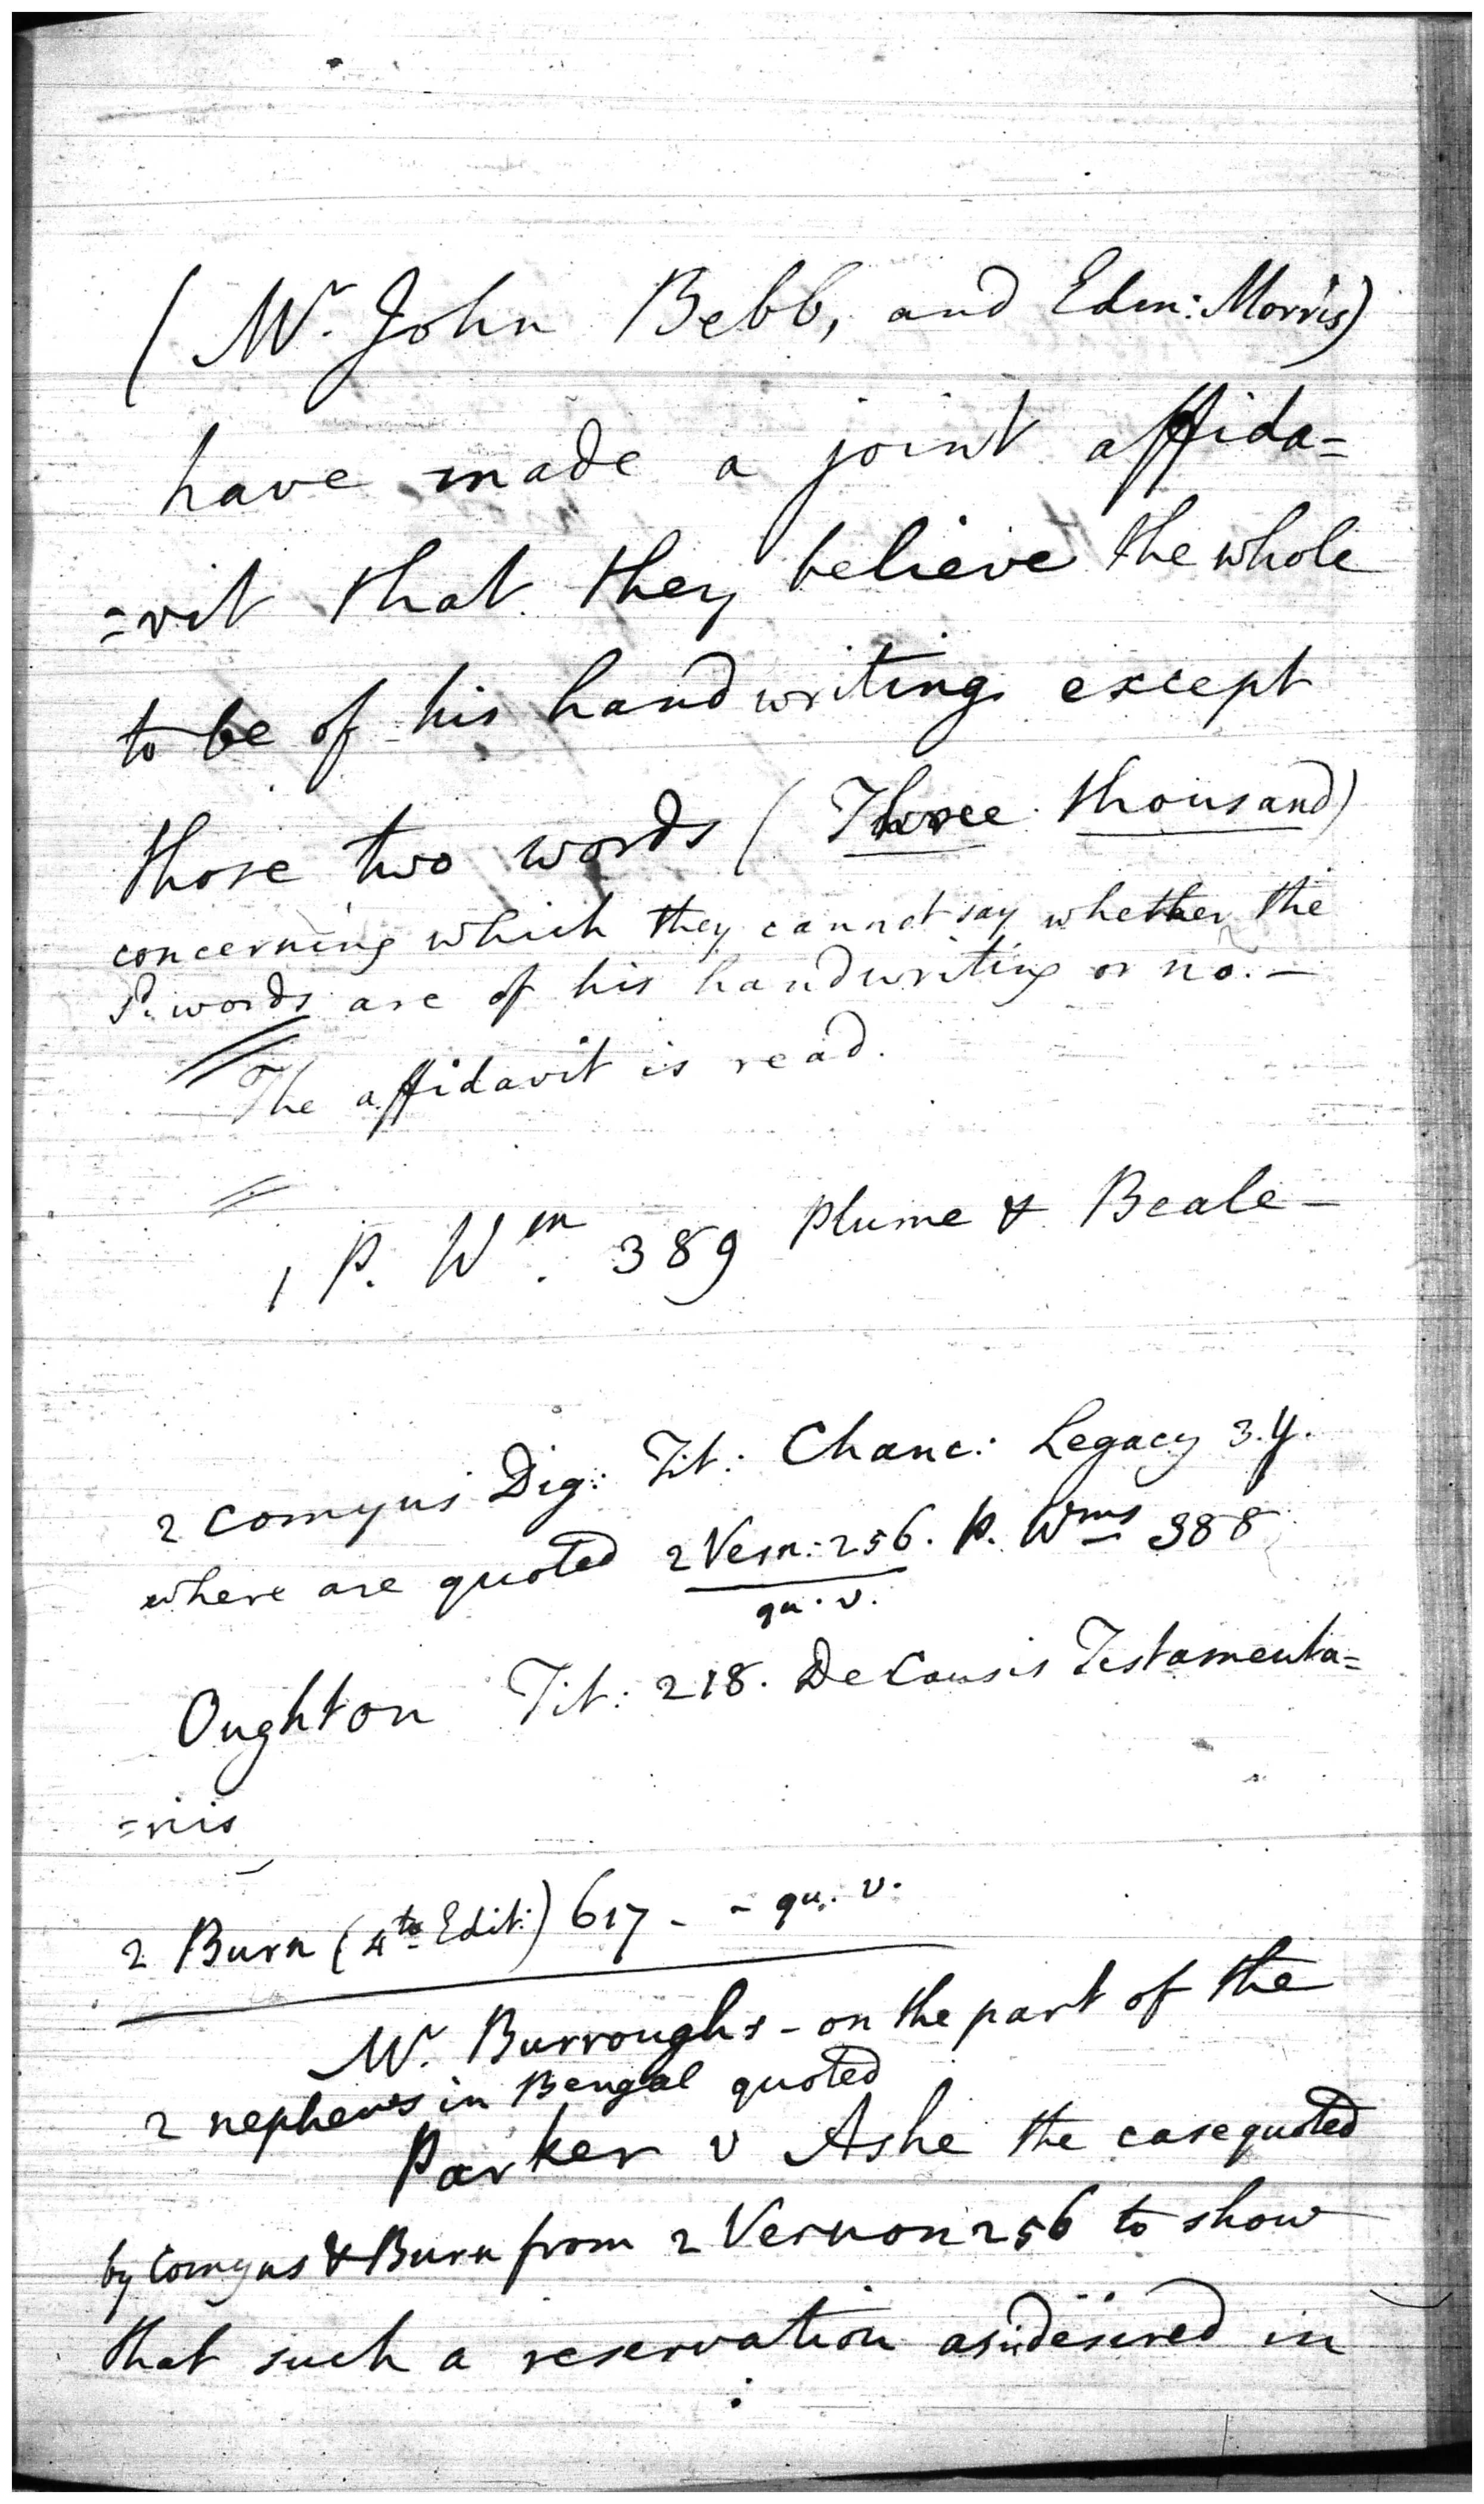 (Mr. John Bebb, and Edm: Morris)
have made a joint affida=
=vit that they believe the whole
to be of his handwriting except
those two words (Three thousand)
concerning which they cannot say whether the
sd. words are of his handwriting or no. —
The affidavit is read.
1 P. Wm. 389 Plume & Beale —
2 Comyns Dig: Tit: Chanc: Legacy 3.Y.
where are quoted 2 Vern: 256. P. Wms 388
qu. v.
Oughton Tit: 218. De Causis Testamenta=
=riis
2 Burn (4to Edit:) 617 - - qu. v.
Mr. Burroughs - on the part of the
2 nephews in Bengal quoted
Parker v Ashe the case quoted
by Comyns & Burn from 2 Vernon 256 to show
that such a reservation as desired in